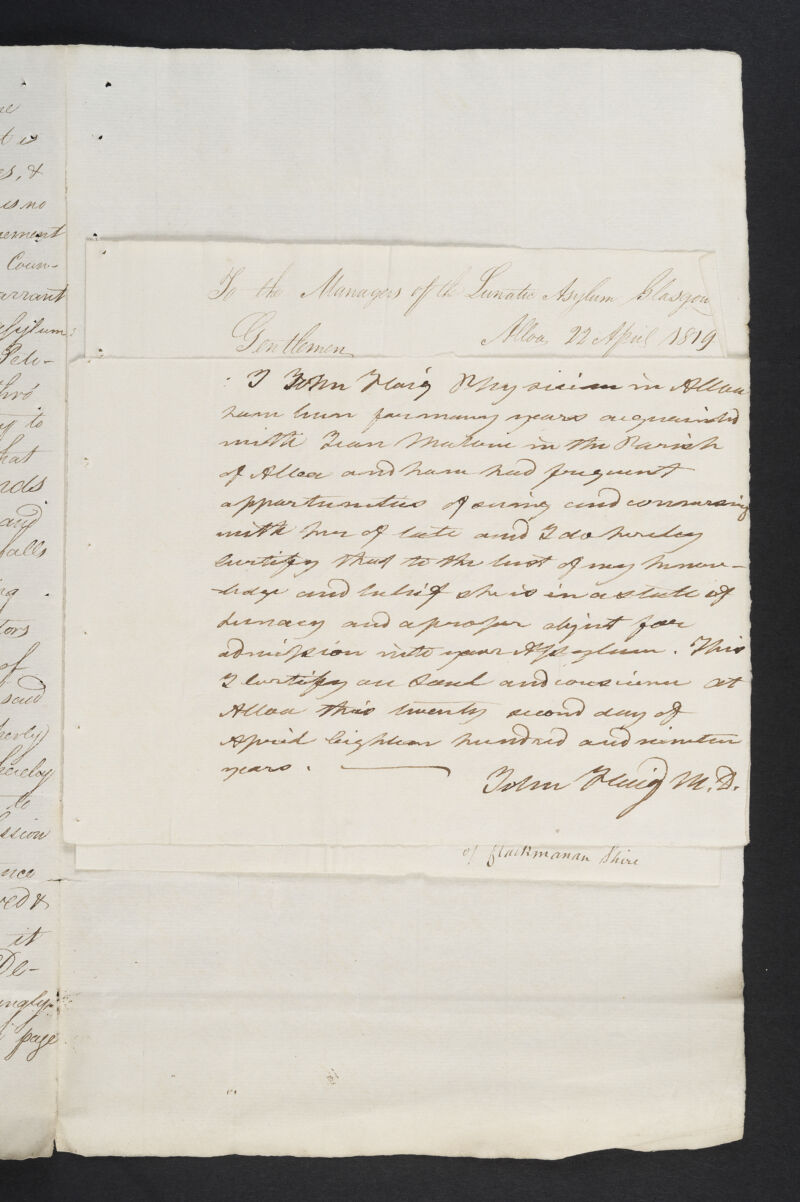 ue
t is
es, &
is no
nement
Coun-
arrant
Asylum
Peti-
thro'
y to
hat
nds
and
falls
ng.
tors
of
said
hereby
to
ssion
nce
red &
it
De-
ingly
page
To the Managers of the Lunatic Asylum Glasgow
Gentlemen Alloa 22 April 1819
I John Haig Physician in Alloa
have been for many years acquainted
with Jean in the Parish
of Alloa and have had frequent
oppartunities of seing and conversing
with her of late and I do hereby
certify that to the best of my know-
ledge and belief she is in a state of
Lunacy and a proper object for
admission into your Assylum. This
I certify on Soul and concience at
Alloa this twenty second day of
April Eighteen hundred and nineteen
years.
John Haig M.D.
of Clackmanan Shire